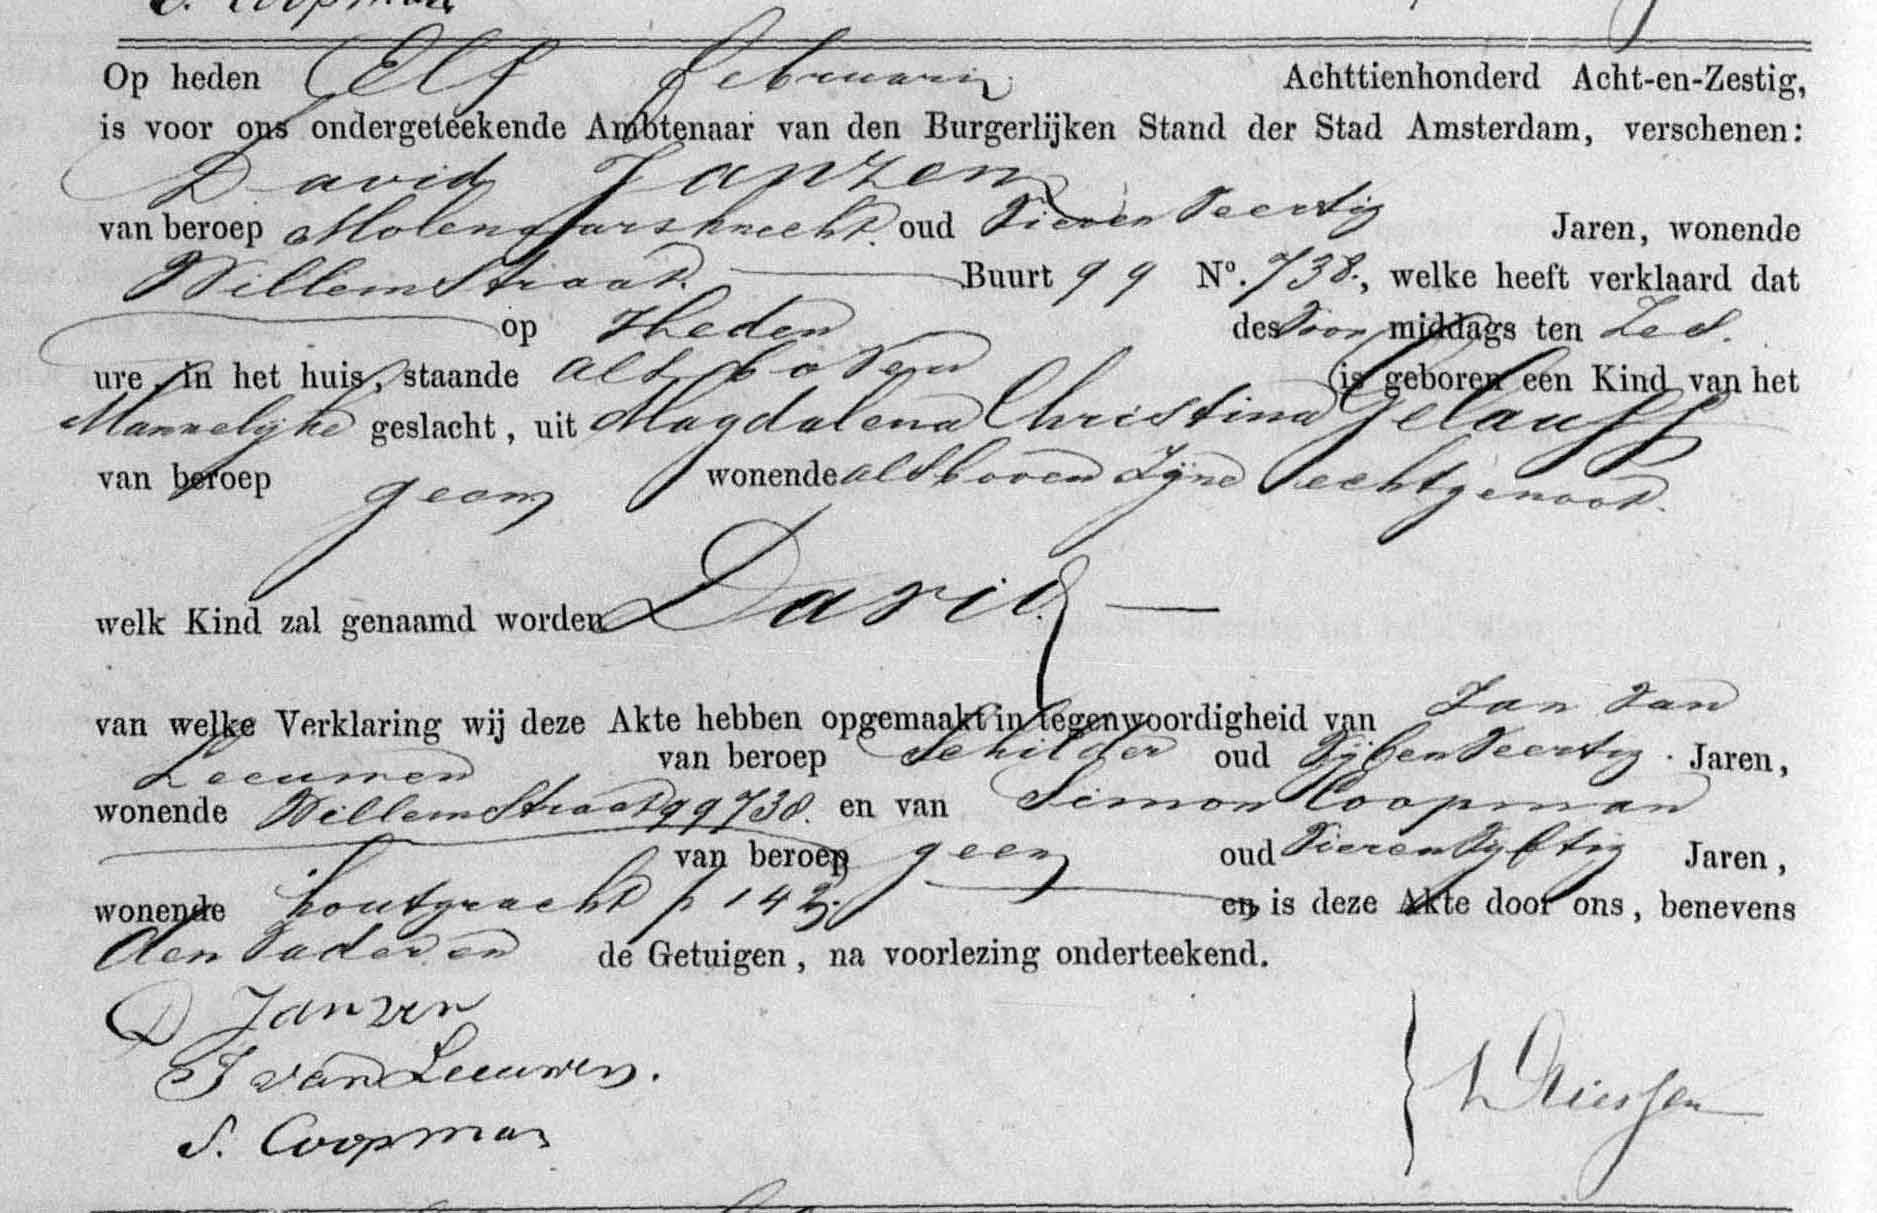 S. Coopman
Op heden Elf Februari Achttienhonderd Acht-en-Zestig,
is voor ons ondergeteekende Ambtenaar van den Burgerlijken Stand der Stad Amsterdam, verschenen:
David Janzen
van beroep Molenaarsknecht oud Vierenveertig Jaren, wonende
Willemstraat Buurt 99 No. 738., welke heeft verklaard dat
op Heden des Voor middags ten Zes.
ure, in het huis, staande als boven is geboren een Kind van het
Mannelijke geslacht, uit Magdalena Christina Gelauff
van beroep geen wonende als boven Zijne echtgenoot.
welk Kind zal genaamd worden David —
van welke Verklaring wij deze Akte hebben opgemaakt in tegenwoordigheid van Jan van
Leeuwen van beroep Schilder oud Vijfenveertig Jaren,
wonende Willemstraat 99 738. en van Simon Coopman
van beroep geen oud Vierenvijftig Jaren,
wonende houtgracht p en is deze Akte door ons, benevens
den Vader en de Getuigen, na voorlezing onderteekend.
D Janzen
J van Leeuwen.
S. Coopman